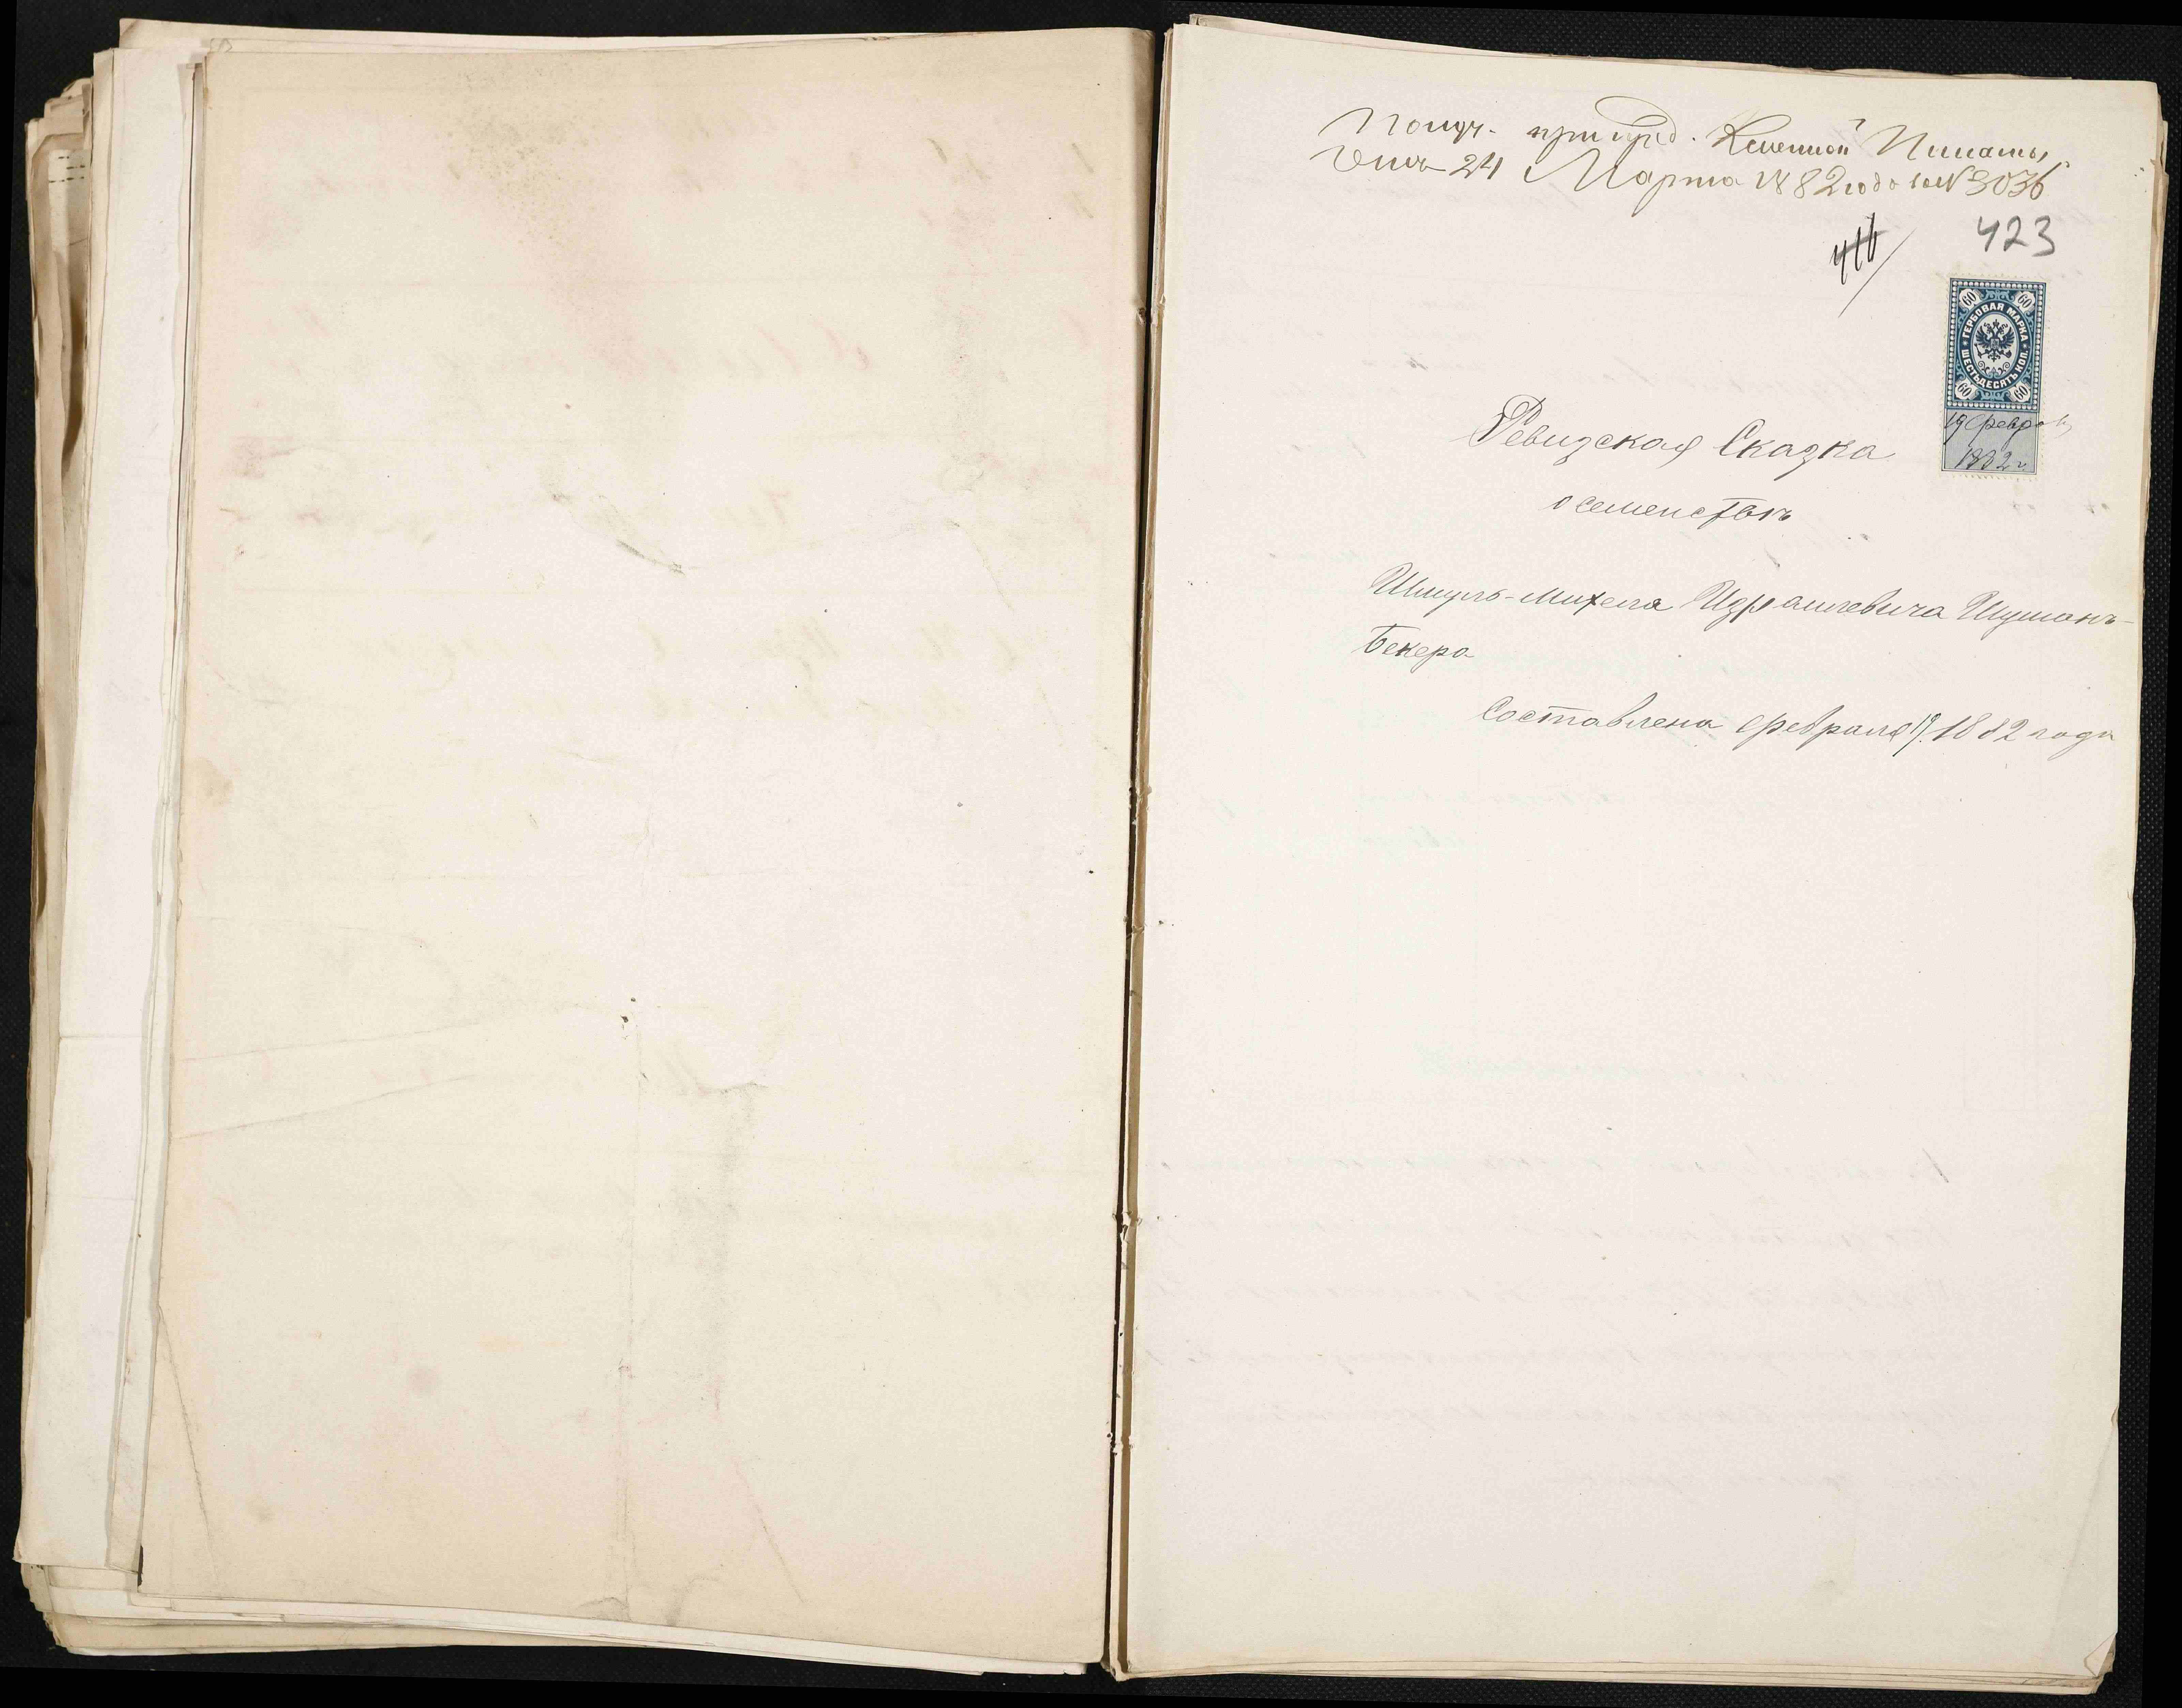 Получ. при пред. Казенной Палаты,
отъ 24 Марта 1882 года за № 3036
416
423
60 60
ГЕРБОВАЯ МАРКА
ШЕСТЬДЕСЯТЪ КОП.
60 60
19 Февраля
1882 г.
Ревизская Сказка
о семействѣ
Шмуль-Михеля Израилевича Шуман-
бекера
Составлена Февраля 19 1882 года